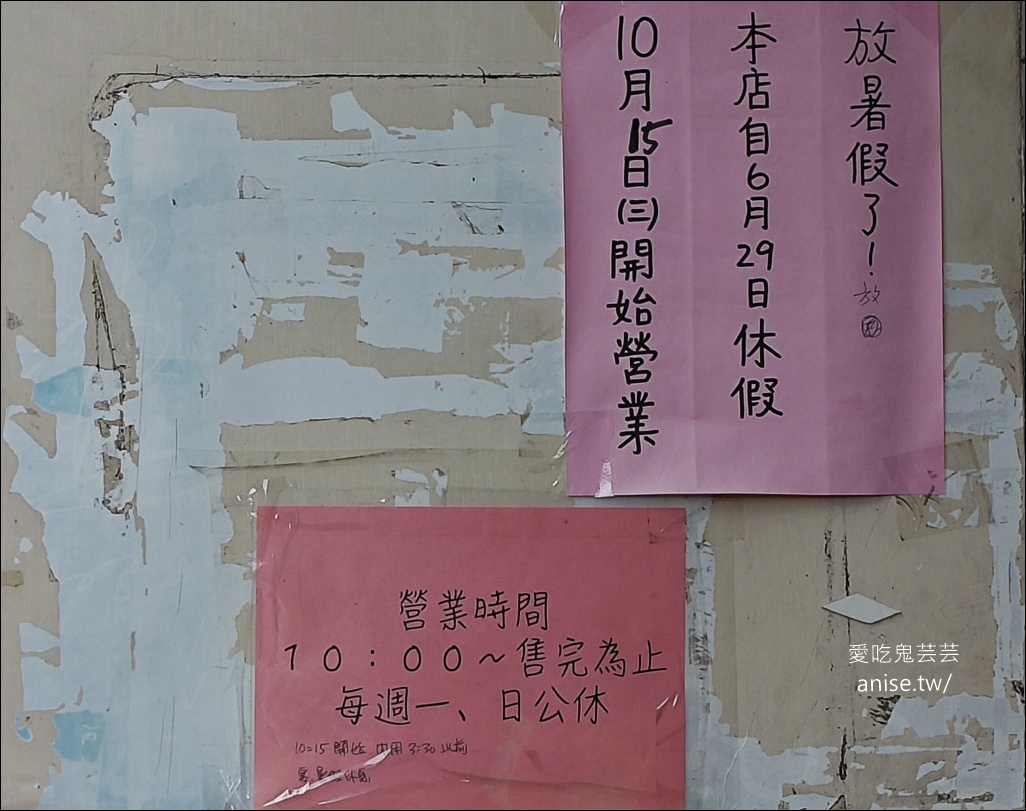 放暑假了!
本店自6月29日休假
10月15日(三)開始營業
營業時間
10:00~售完為止
每週一、日公休
10=15 開始 內用 3=30 以前
愛吃鬼芸芸
anise.tw/